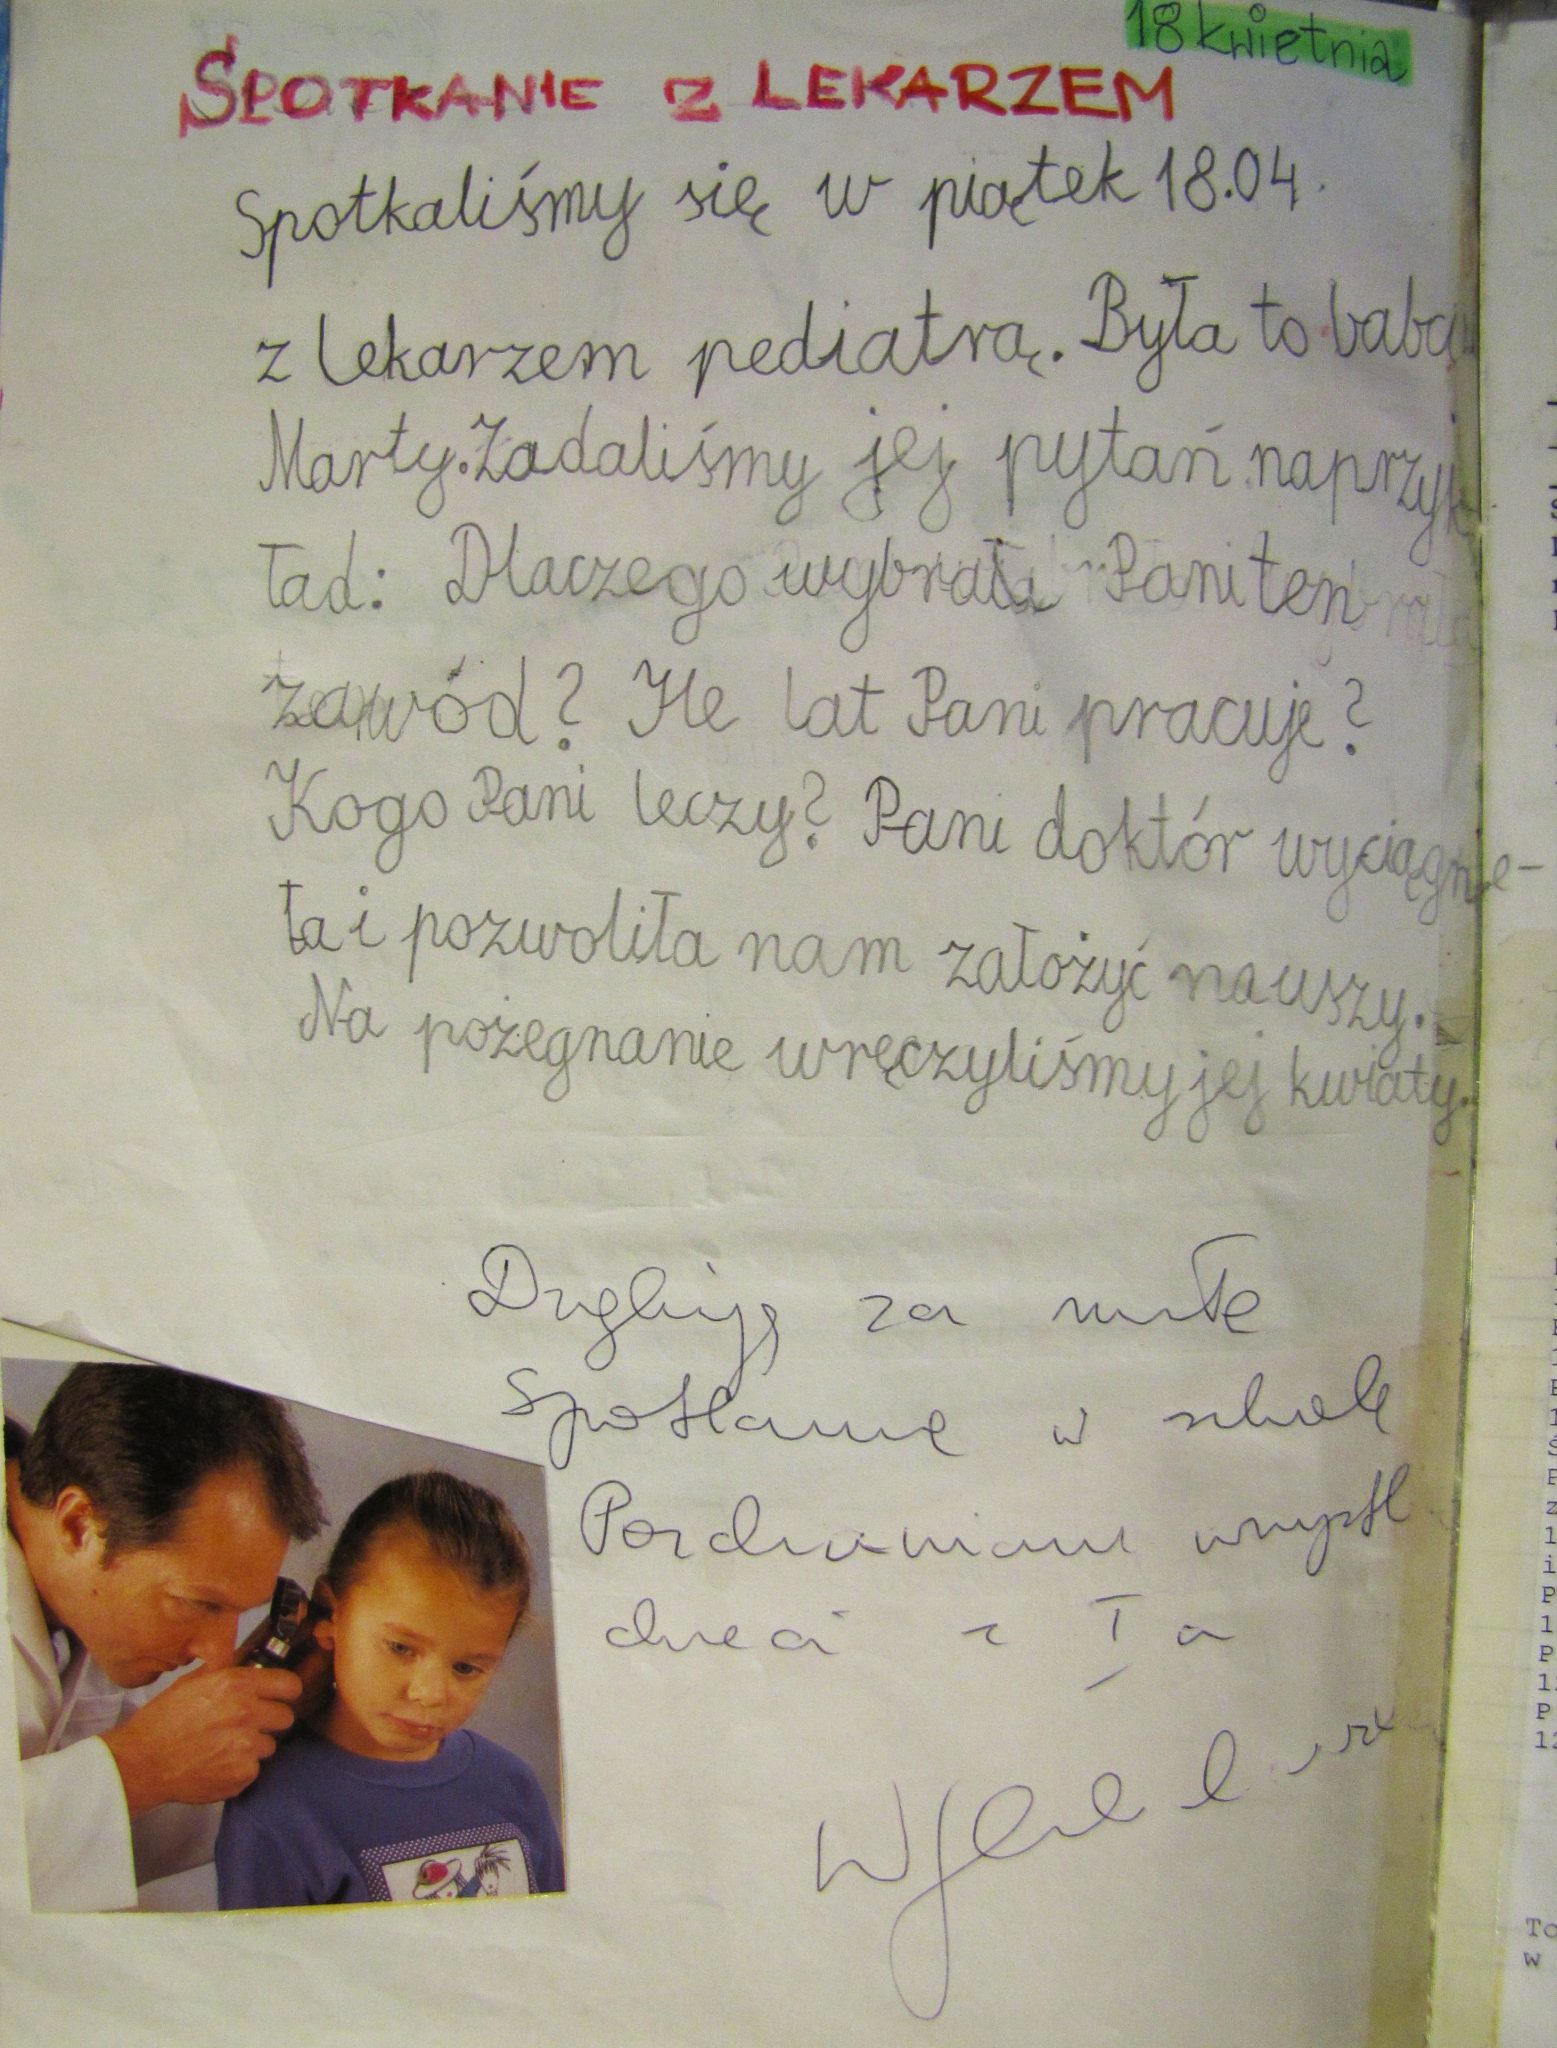 18 kwietnia
SPOTKANIE Z LEKARZEM
Spotkaliśmy się w piątek 18.04.
z lekarzem pediatrą. Była to babcia
Marty. Zadaliśmy jej pytań naprzyk
ład: Dlaczego wybrała Pani ten
zawód? Ile lat Pani pracuje?
Kogo Pani leczy? Pani doktór wyciągnie-
ła i pozwoliła nam założyć na uszy.
Na pożegnanie wręczyliśmy jej kwiaty.
Dziękuję za miłe
spotkanie w szkole
Pozdrawiam wszystk
dzieci z I a
To
w